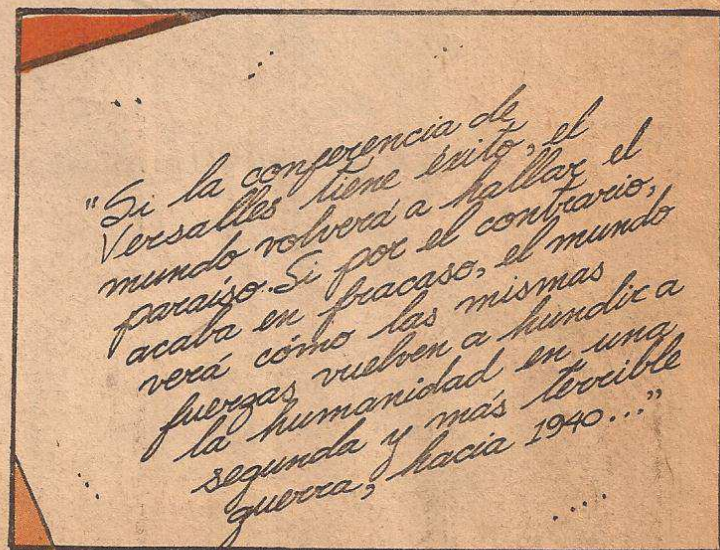 "Si la conferencia de
Versalles tiene éxito, el
mundo volverá a hallar el
paraíso. Si por el contrario,
acaba en fracaso, el mundo
verá cómo las mismas
fuerzas vuelven a hundir a
la humanidad en una
segunda y más terrible
guerra, hacia 1940..."